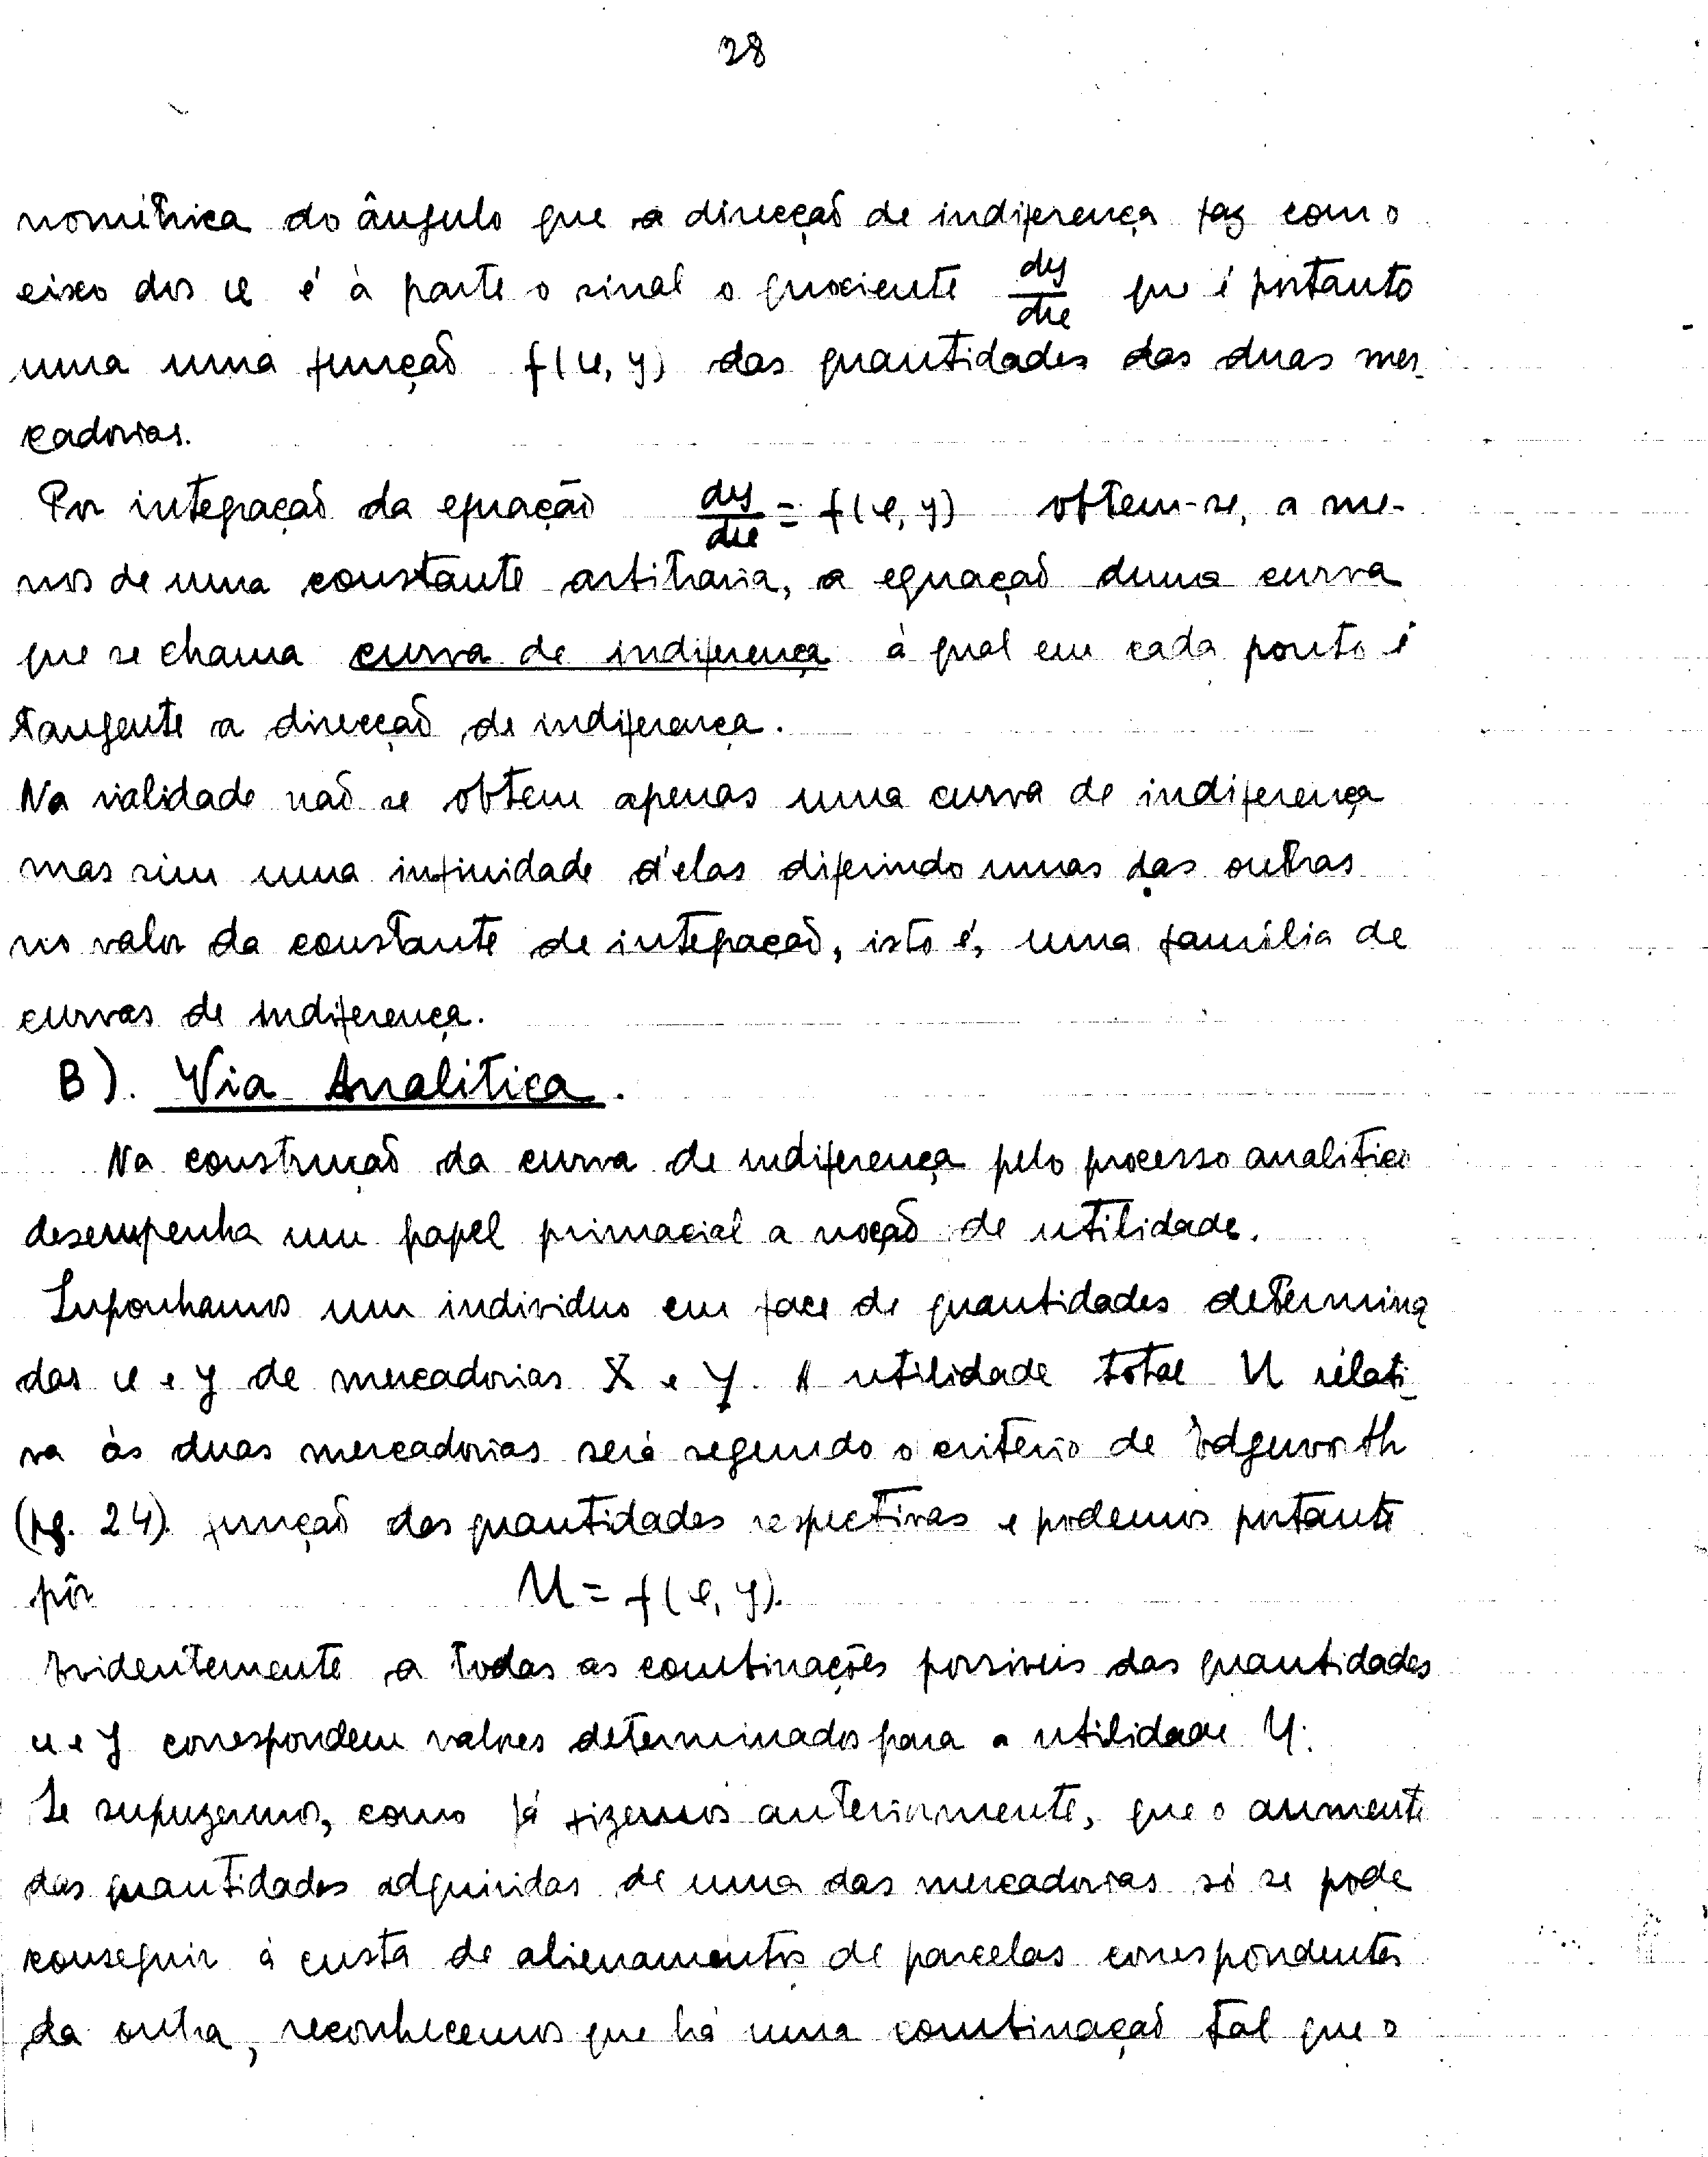 28
nométrica do ângulo que a direcção de indiferença faz com o
eixo dos x é à parte o sinal o quociente dy/dx que é portanto
uma uma função f(x, y) das quantidades das duas mer-
cadorias.
Por integração da equação dy/dx = f(x, y) obtem-se, a me-
nos de uma constante arbitraria, a equação duma curva
que se chama curva de indiferença á qual em cada ponto é
tangente a direcção de indiferença.
Na rialidade não se obtem apenas uma curva de indiferença
mas sim uma infinidade d'elas diferindo umas das outras
no valor da constante de integração, isto é, uma família de
curvas de indiferença.
B). Via Analitica.
Na construção da curva de indiferença pelo processo analitico
desempenha um papel primacial a noção de utilidade.
Suponhamos um individuo em face de quantidades determina
das x e y de mercadorias X e Y. A utilidade total U relati-
va às duas mercadorias será segundo o critério de Edgeworth
(pg. 24) função das quantidades respectivas e podemos portanto
pôr U = f(x, y).
Evidentemente a todas as combinações possiveis das quantidades
x e y correspondem valores determinados para a utilidade U.
Se supuzermos, como já fizemos anteriormente, que o aumento
das quantidades adquiridas de uma das mercadorias só se pode
conseguir á custa de alienamentos de parcelas correspondentes
da outra, reconhecemos que há uma combinação tal que o